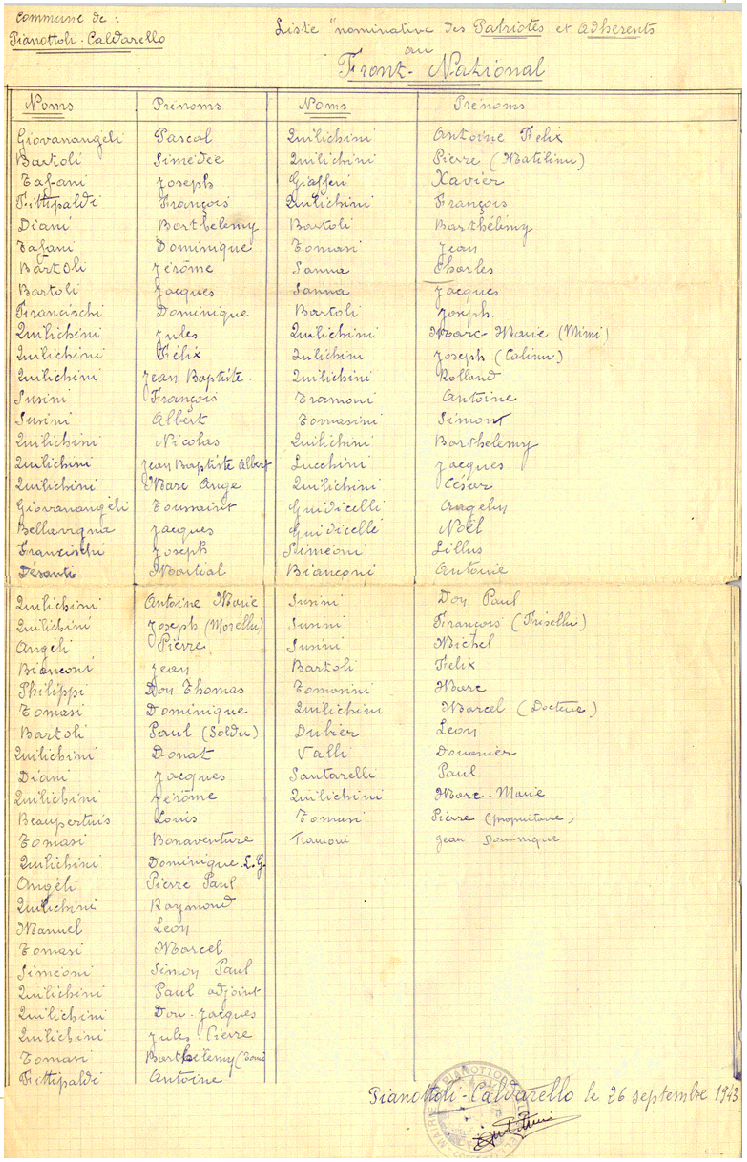 Commune de :
Pianottoli-Caldarello
Liste "nominative des Patriotes et Adhérents
au
Front-National
Noms Prénoms Noms Prénoms
Giovanangeli Pascal Quilichini Antoine Felix
Bartoli Simédée Quilichini Pierre (Matilinu)
Tafani Joseph Giafferi Xavier
Fittipaldi François Quilichini François
Diani Barthelemy Bartoli Barthélémy
Tafani Dominique Tomasi Jean
Bartoli Jérôme Sanna Charles
Bartoli Jacques Sanna Jacques
Francischi Dominique Bartoli Joseph
Quilichini Jules Quilichini Marc-Marie (Mimi)
Quilichini Félix Quilichini Joseph (Calinu)
Quilichini Jean Baptiste Quilichini Rolland
Susini François Tramoni Antoine
Susini Albert Tomasini Simont
Quilichini Nicolas Quilichini Barthelemy
Quilichini Jean Baptiste Albert Lucchini Jacques
Quilichini Marc Ange Quilichini César
Giovanangéli Toussaint Guidicelli Angelin
Bellavigna Jacques Guidicelli Noël
Francischi Joseph Siméoni Lillus
Désanti Martial Bianconi Antoine
Quilichini Antoine Marie Susini Don Paul
Quilichini Joseph (Morellu) Susini François (Frisellu)
Angéli Pierre Susini Michel
Bianconi Jean Bartoli Felix
Philippi Don Thomas Tomasini Marc
Tomasi Dominique Quilichini Marcel (Docteur)
Bartoli Paul (Soldu) Dubier Leon
Quilichini Donat Valli Douanier
Diani Jacques Santarelli Paul
Quilichini Jérôme Quilichini Marc-Marie
Beaupertuis Louis Tomasi Pierre (propriétaire)
Tomasi Bonaventure Tramoni Jean Dominique
Quilichini Dominique L.G.
Angéli Pierre Paul
Quilichini Raymond
Manuel Leon
Tomasi Marcel
Siméoni Simon Paul
Quilichini Paul adjoint
Quilichini Don-Jacques
Quilichini Jules Pierre
Tomasi Barthélémy (Tomi
Fittipaldi Antoine
Pianottoli-Caldarello le 26 septembre 1943